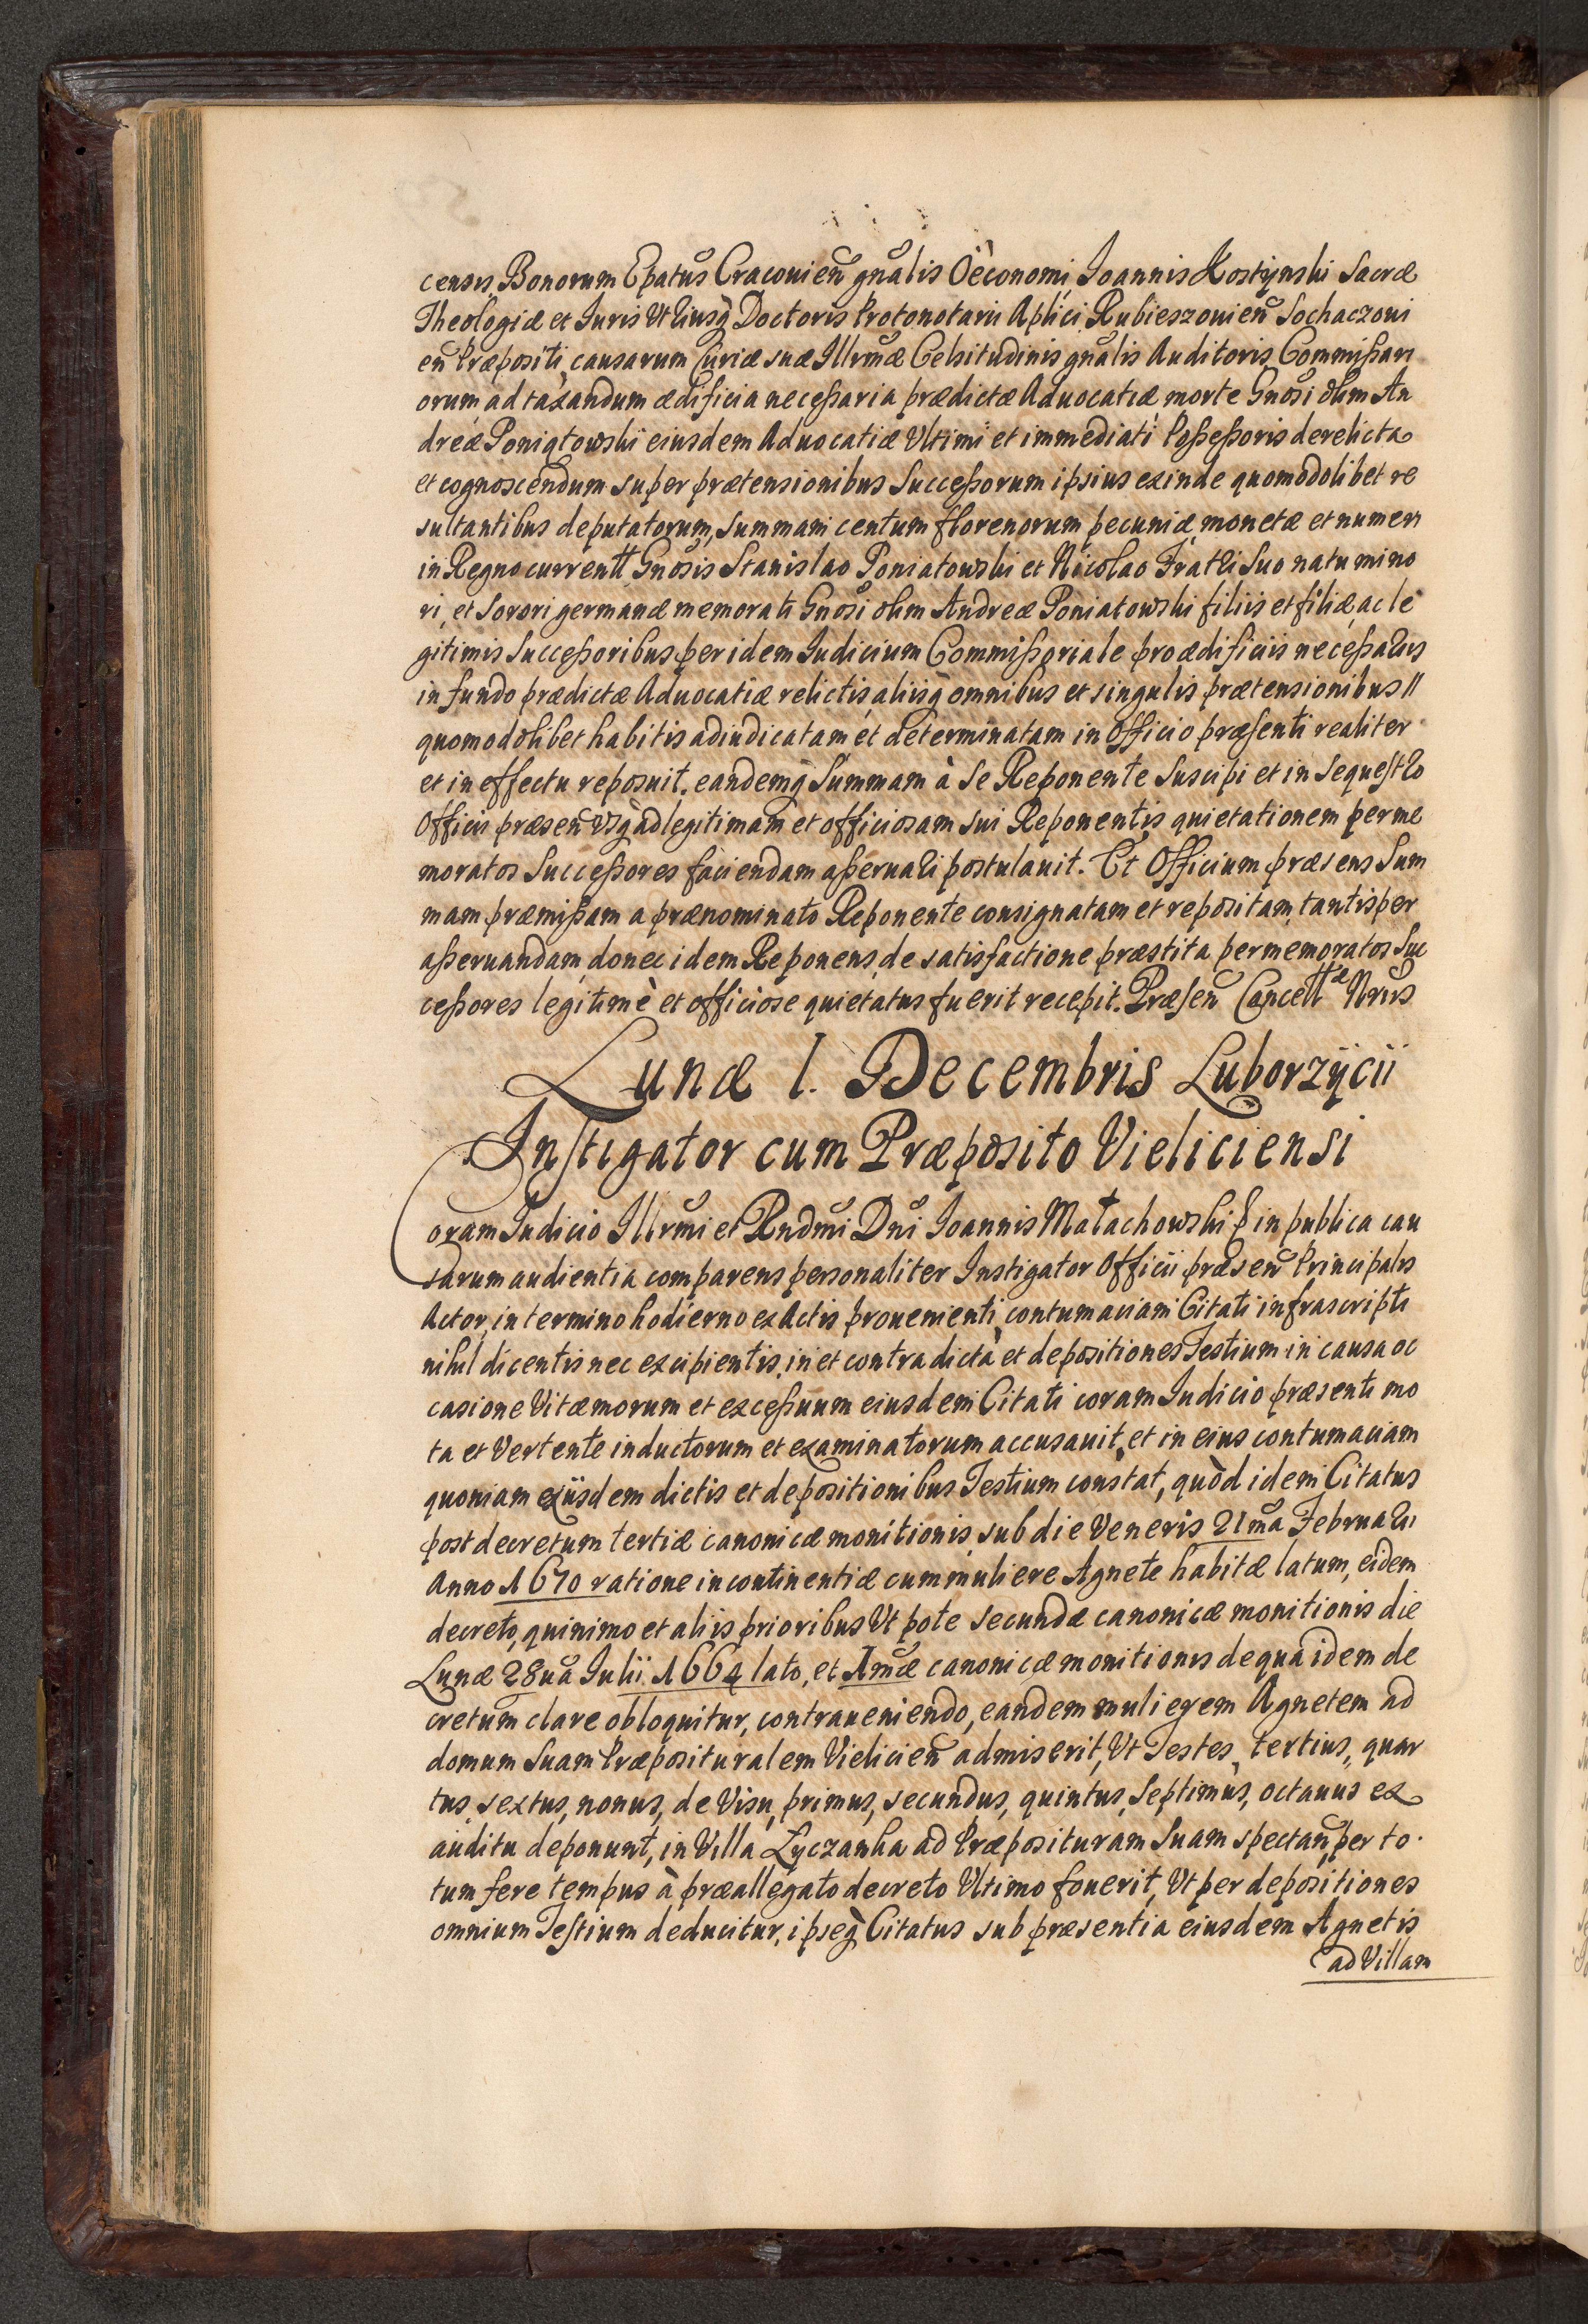 censis Bonorum Epatus Cracouien gnalis Oeconomi, Joannis Kostynski Sacræ
Theologiæ et Juris Utriusq Doctoris Protonotarii Aplici Rubieszouien Sochaczoui
en Præpositi, causarum Curiæ suæ Illrmæ Celsitudinis gnalis Auditoris, Commissari
orum ad taxandum ædificia necessaria prædictæ Aduocatiæ morte Gnosi olim An
dreæ Poniatowski eiusdem Aduocatiæ Ultimi et immediati Possessoris derelicta
et cognoscendum super prætensionibus Successorum ipsius exinde quomodolibet re
sultantibus deputatorum, summam centum florenorum pecuniæ monetæ et numeri
in Regno currentt Gnosis Stanislao Poniatowski et Nicolao Fratri Suo natu mino
ri, et Sorori germanæ memorati Gnosi olim Andreæ Poniatowski filiis et filiæ, ac le
gitimis Successoribus per idem Judicium Commissoriale pro ædificiis necessariis
in fundo prædictæ Aduocatiæ relictis, aliisq omnibus et singulis prætensionibus //
quomodolibet habitis adiudicatam et determinatam in Officio præsenti realiter
et in effectu reposuit. eandemq Summam à Se Reponente Suscipi et in Sequestro
Officii præsen usq ad legitimam et officiosam sui Reponentis quietationem per me
moratos Successores faciendam asseruari postulauit. Et Officium præsens Sum
mam præmissam a prænominato Reponente consignatam et repositam, tantisper
asseruandam, donec idem Reponens de satisfactione præstita per memoratos Suc
cessores legitimè et officiose quietatus fuerit recepit. Præsen Cancell Nrius
Lunæ 1. Decembris Luborzÿcii
Instigator cum Præposito Vieliciensi
Coram Judicio Illrmi et Rndmi Dni Joannis Małachowski & in publica cau
sarum audientia comparens personaliter Instigator Officii præsen Principalis
Actor, in termino hodierno ex Actis prouenienti, contumaciam Citati infrascripti
nihil dicentis nec excipientis, in et contra dicta et depositiones Testium in causa oc
casione Vitæ morum et excessuum eiusdem Citati coram Judicio præsenti mo
ta et Vertente inductorum et examinatorum accusauit, et in eius contumaciam
quoniam ex iisdem dictis et depositionibus Testium constat, quòd idem Citatus
post decretum tertiæ canonicæ monitionis, sub die Veneris 21ma Februarii
Anno 1670 ratione incontinentiæ cum muliere Agnete habitæ latum, eidem
decreto, quinimo et aliis prioribus Ut pote secundæ canonicæ monitionis die
Lunæ 28ua Julii 1664 lato, et 1mæ canonicæ monitionis de qua idem de
cretum clare obloquitur, contraueniendo, eandem mulierem Agnetem ad
domum Suam Præposituralem Vielicien admiserit, Ut Testes, tertius, quar
tus, sextus, nonus, de Visu, primus, secundus, quintus, Septimus, octauus ex
auditu deponunt, in Villa Lyczanka ad Præposituram Suam spectan, per to
tum fere tempus à præallegato decreto Ultimo fouerit, Ut per depositiones
omnium Testium deducitur, ipseq Citatus sub præsentia eiusdem Agnetis
ad Villam